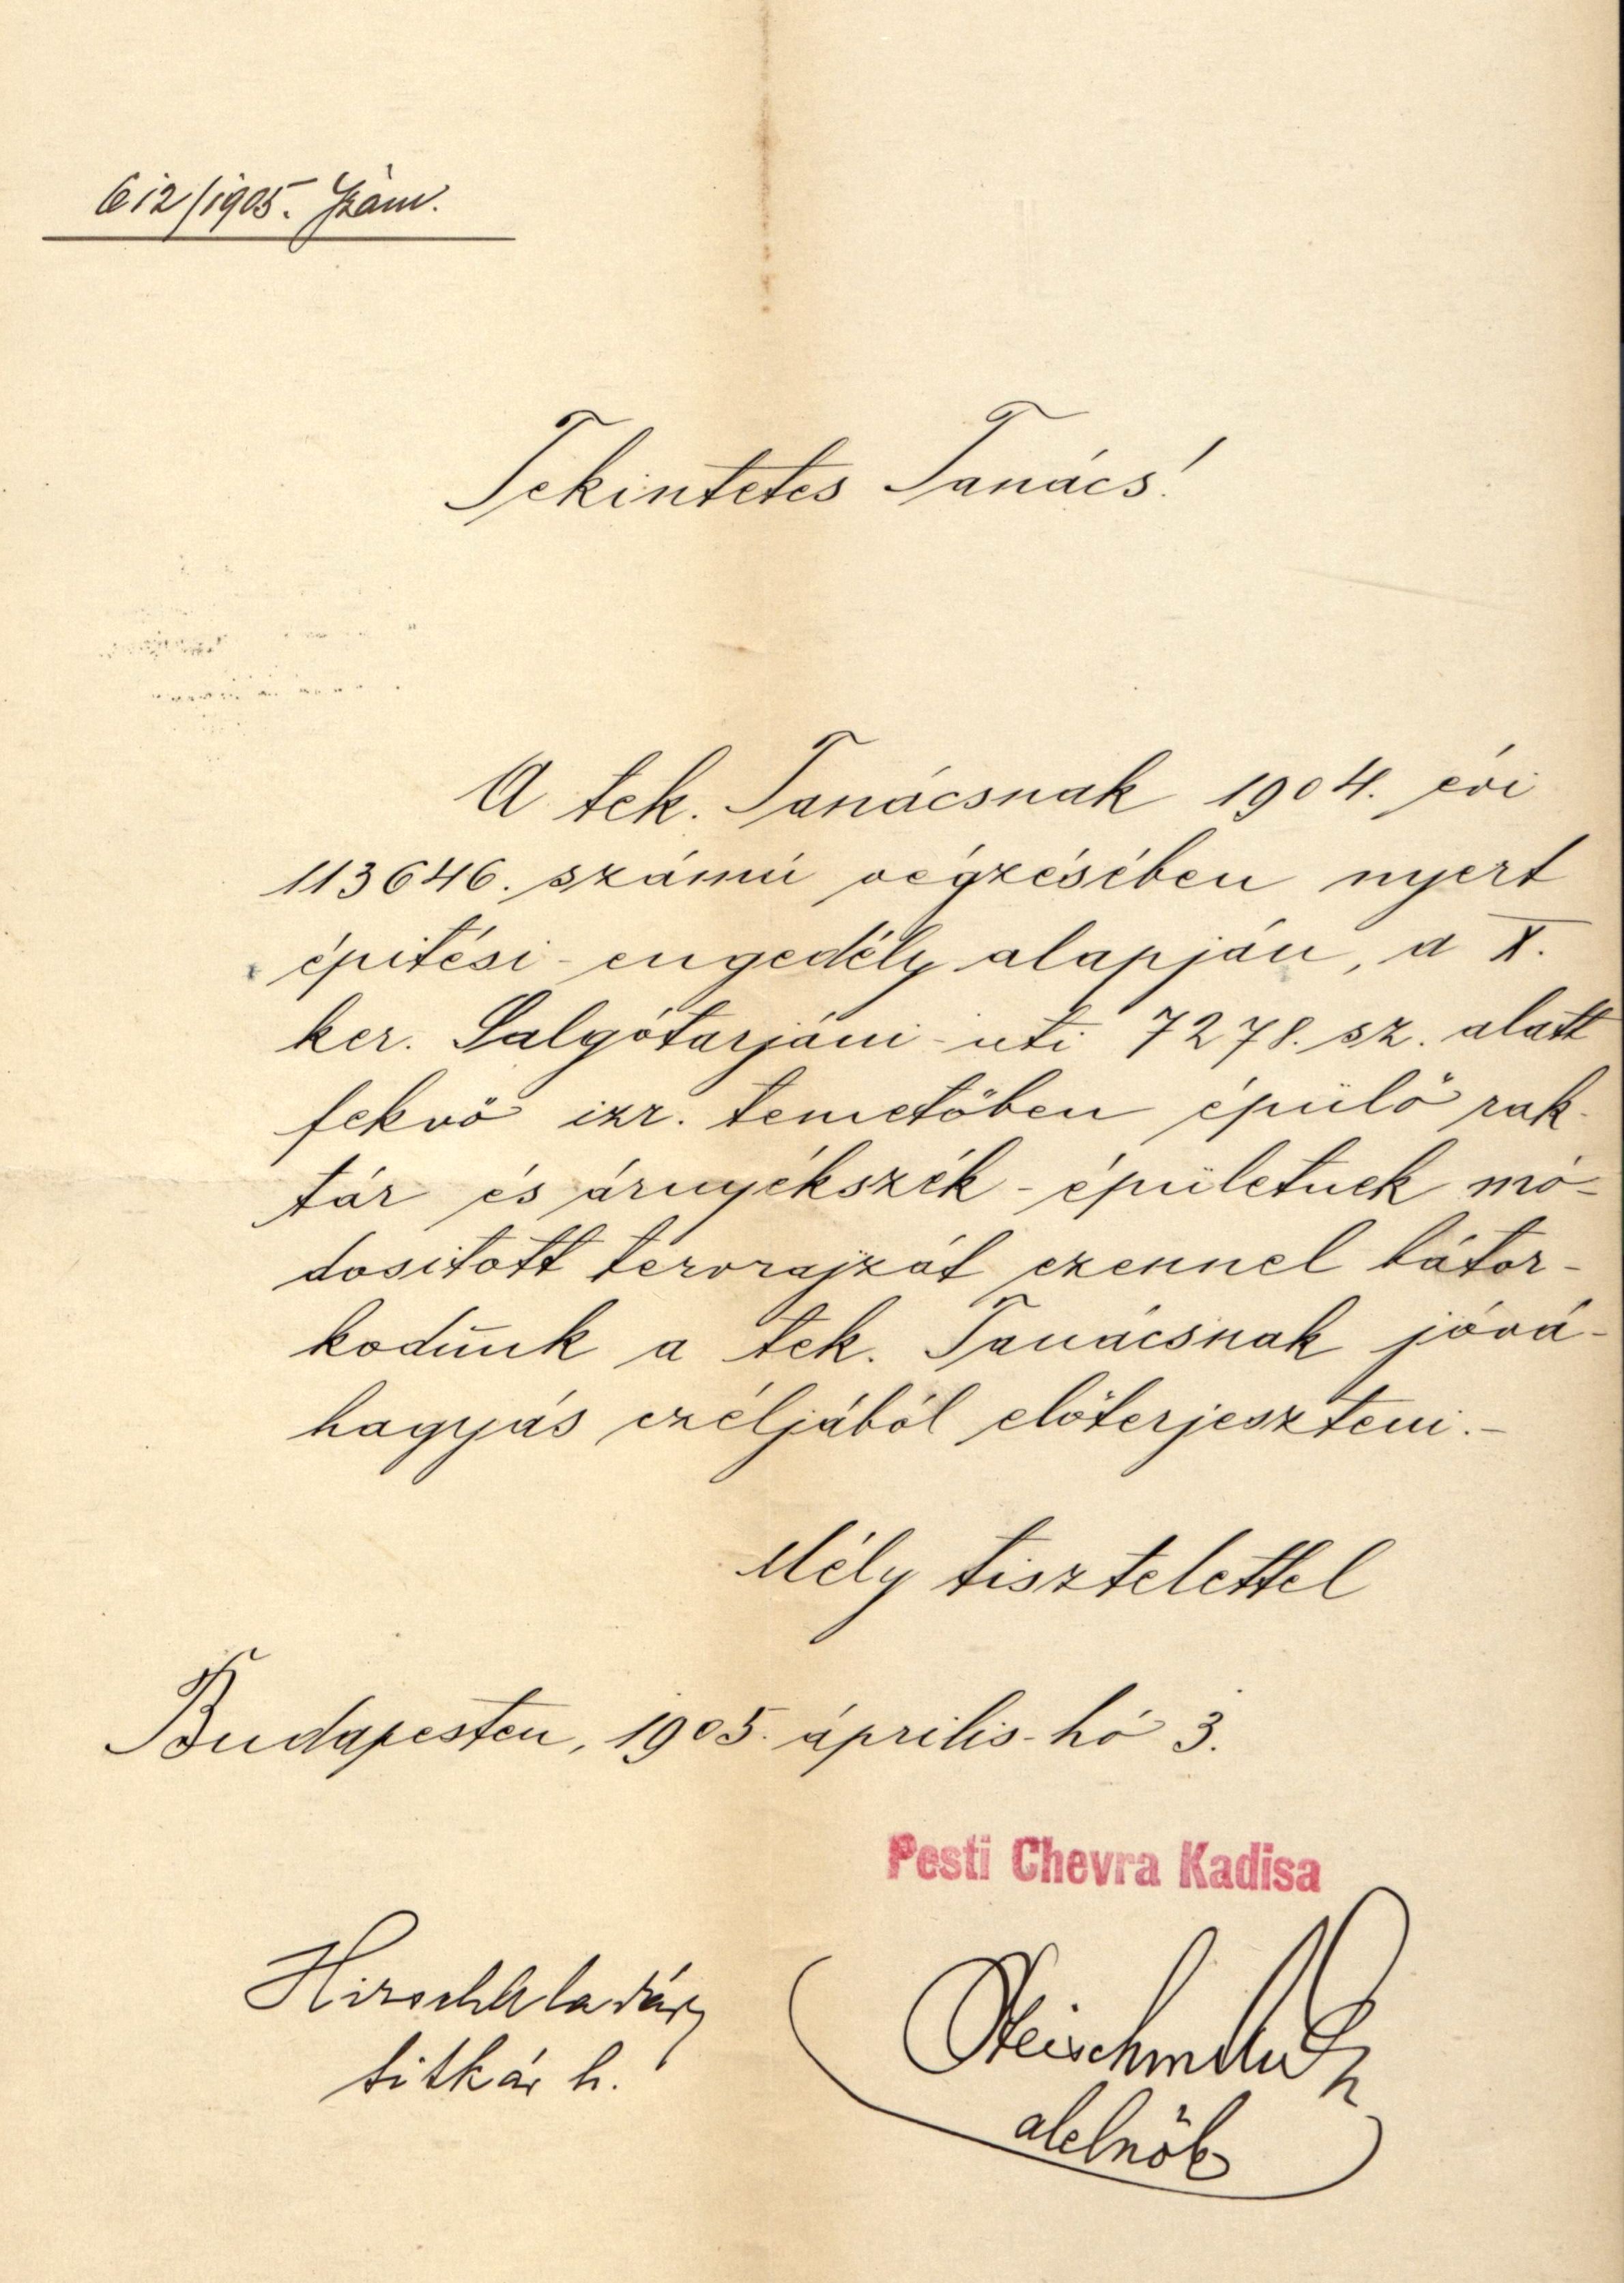 612/1905. szám.
Tekintetes Tanács!
A tek. Tanácsnak 1904. évi
113646. számú végzésében nyert
épitési-engedély alapján, a X.
ker. Salgótarjáni-uti 7278. sz. alatt
fekvő izr. temetőben épülő rak-
tár és árnyékszék-épületnek mó-
dositott tervrajzát ezennel bátor-
kodunk a tek. Tanácsnak jóvá-
hagyás czéljából előterjeszteni.-
Mély tisztelettel
Budapesten, 1905. április-hó 3.
Pesti Chevra Kadisa
Hirsch Aladár
titkár h.
alelnök